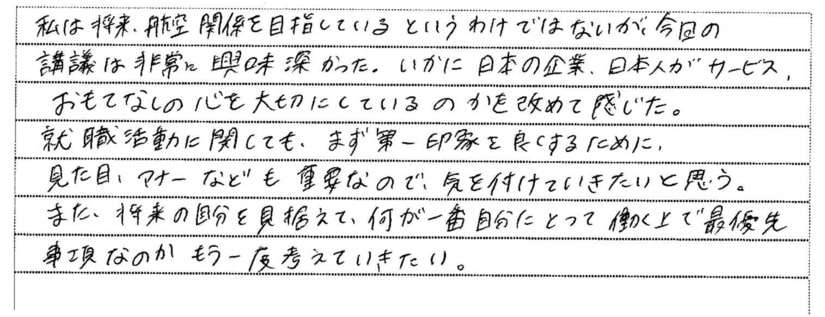 私は将来、航空関係を目指しているというわけではないが、今回の
講議は非常に興味深かった。いかに日本の企業、日本人がサービス、
おもてなしの心を大切にしているのかを改めて感じた。
就職活動に関しても、まず第一印象を良くするために、
見た目、マナーなども重要なので、気を付けていきたいと思う。
また、将来の自分を見据えて、何が一番自分にとって働く上で最優先
事項なのかもう一度考えていきたい。